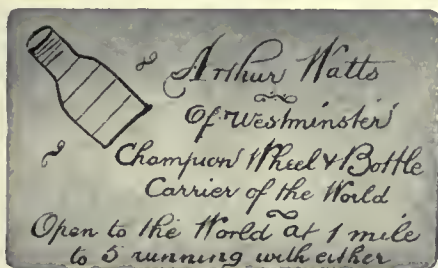 Arthur Watts
Of Westminster
Champion Wheel & Bottle
Carrier of the World
Open to the World at 1 mile
to 5 running with either